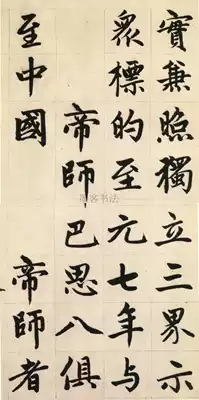 實兼照獨立三界示
眾標的至元七年与
帝師巴思八俱
至中國帝師者